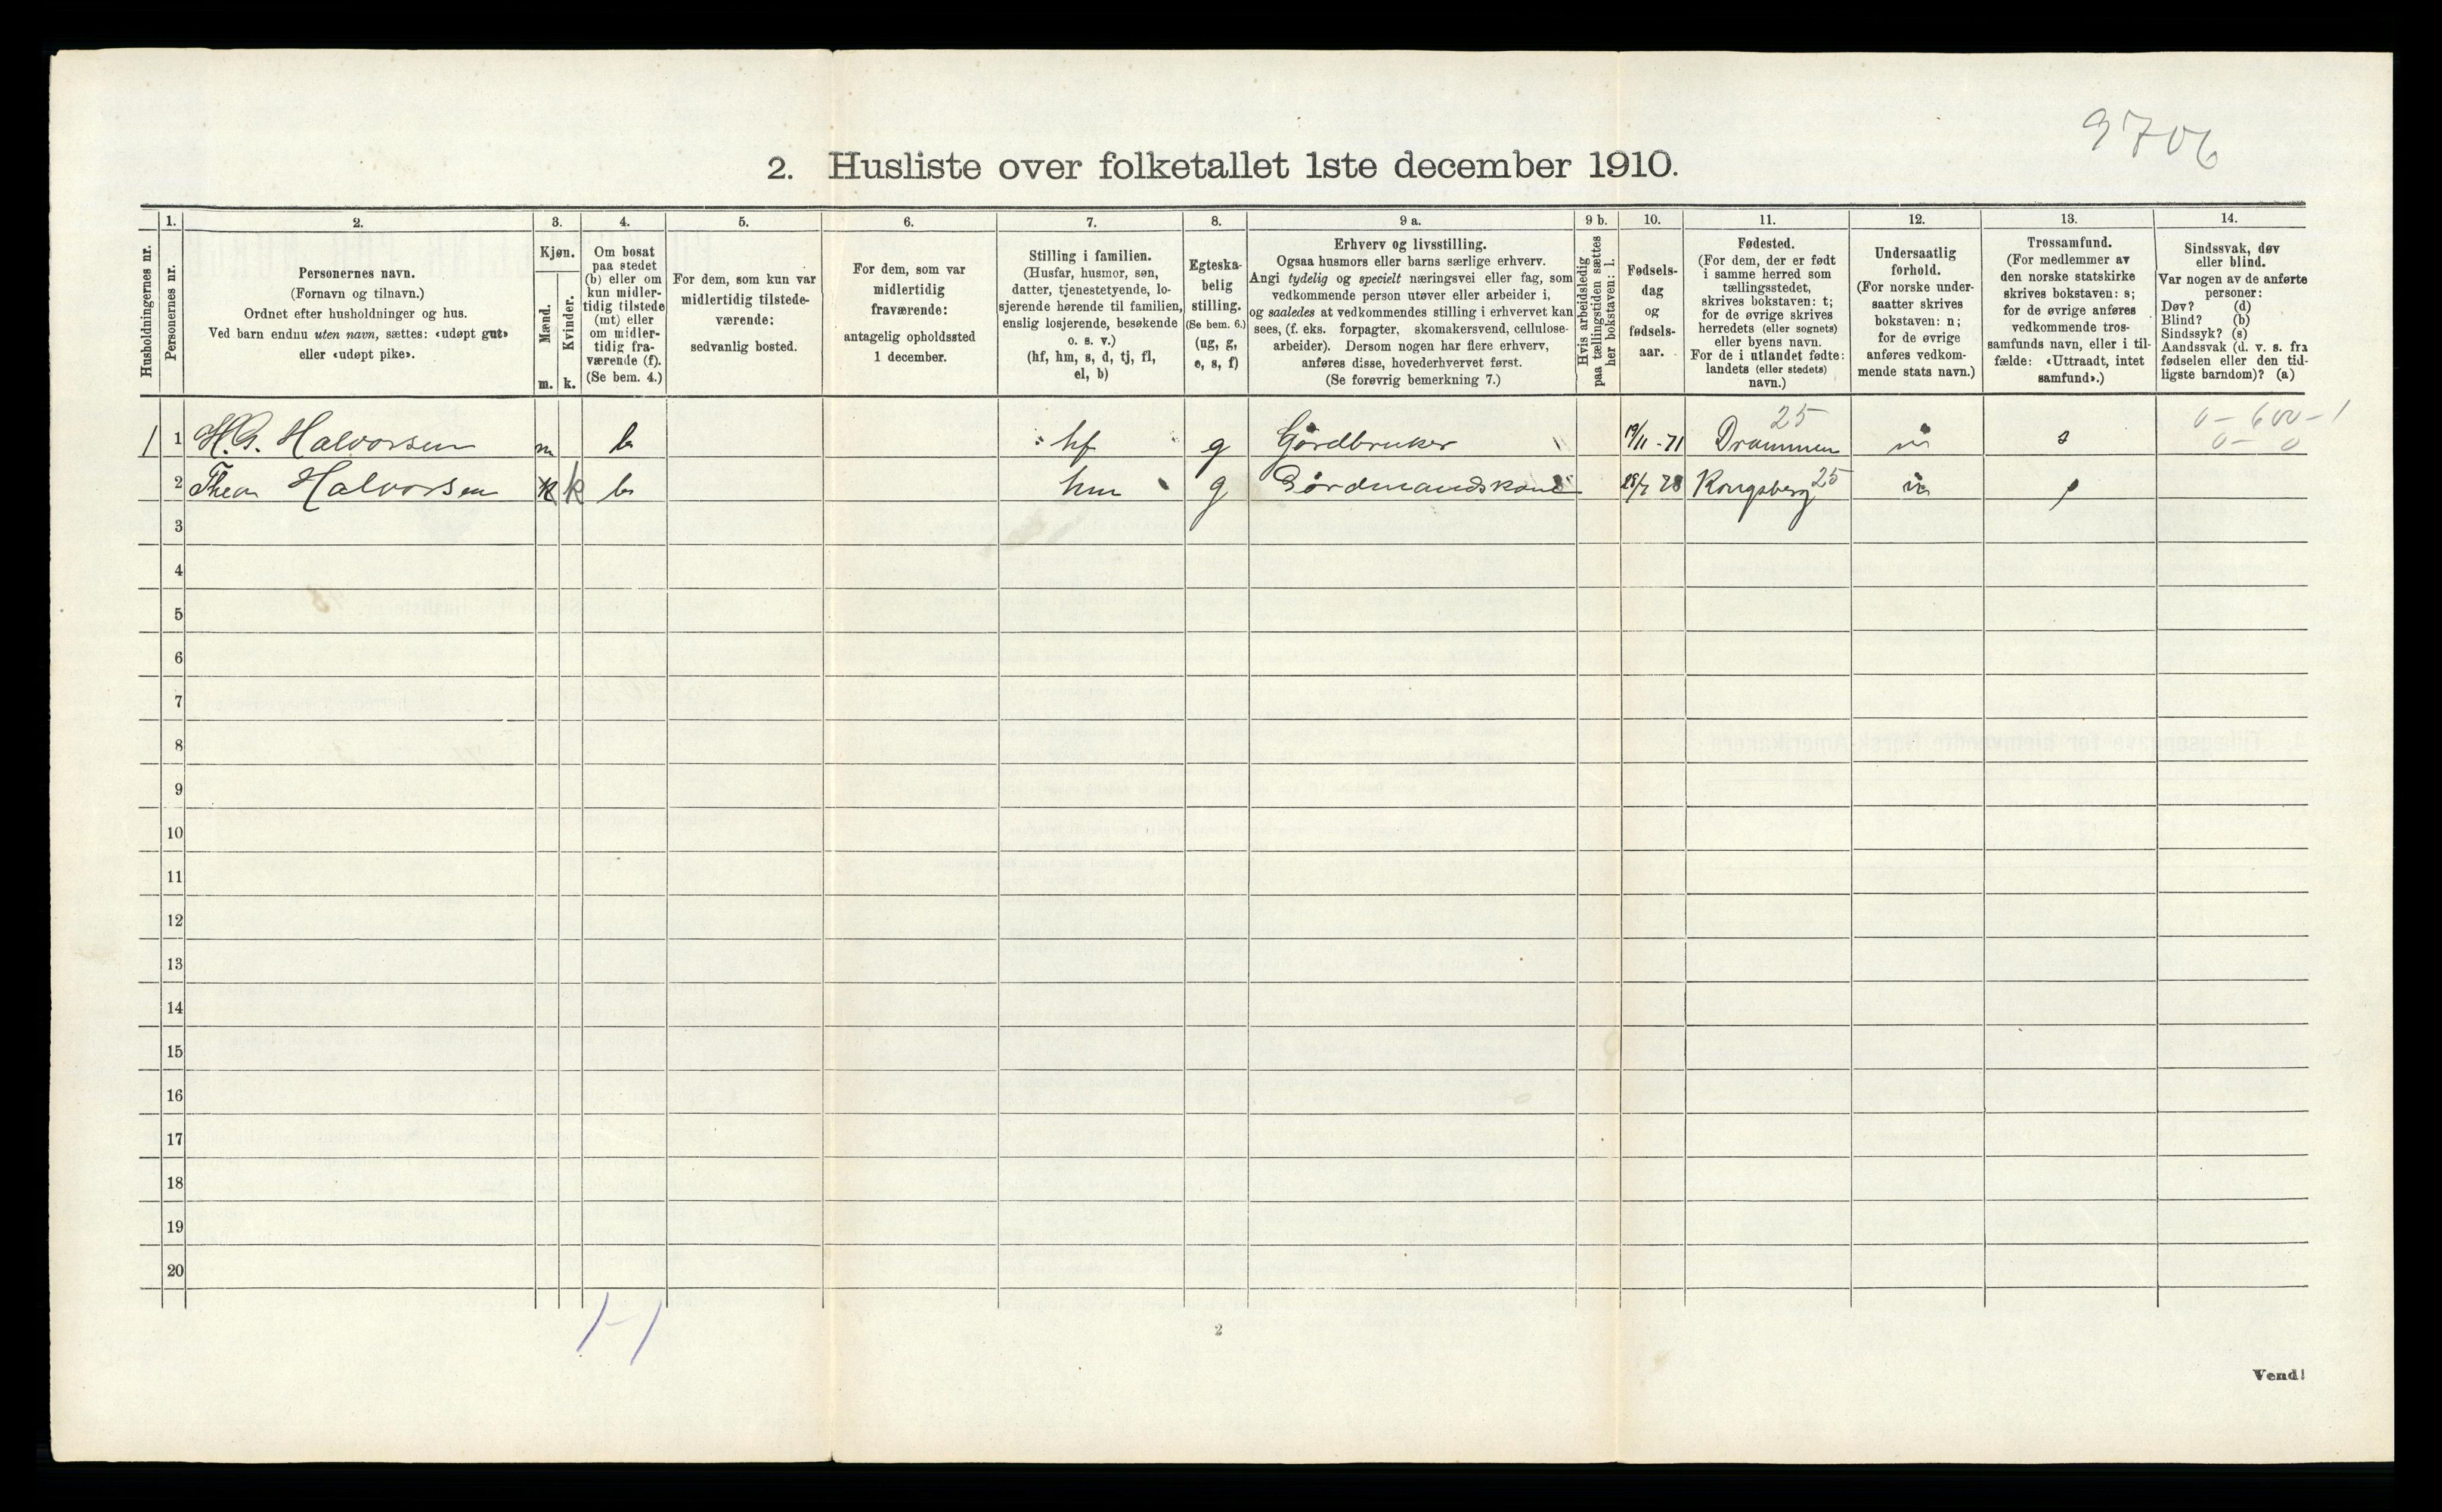 9706
2. Husliste over folketallet 1ste december 1910.
Husholdningernes nr.
1.
Personernes nr.
2.
Personernes navn.
(Fornavn og tilnavn.)
Ordnet efter husholdninger og hus.
Ved barn endnu uten navn, sættes: «udøpt gut»
eller «udøpt pike».
3.
Kjøn.
Mænd.
Kvinder.
m. k.
4.
Om bosat
paa stedet
(b) eller om
kun midler-
tidig tilstede
(mt) eller
om midler-
tidig fra-
værende (f).
(Se bem. 4.)
5.
For dem, som kun var
midlertidig tilstede-
værende:
sedvanlig bosted.
6.
For dem, som var
midlertidig
fraværende:
antagelig opholdssted
1 december.
7.
Stilling i familien.
(Husfar, husmor, søn,
datter, tjenestetyende, lo-
sjerende hørende til familien,
enslig losjerende, besøkende
o. s. v.)
(hf, hm, s, d, tj, fl,
el, b)
8.
Egteska-
belig
stilling.
(Se bem. 6.)
(ug, g,
e, s, f)
9 a.
Erhverv og livsstilling.
Ogsaa husmors eller barns særlige erhverv.
Angi tydelig og specielt næringsvei eller fag, som
vedkommende person utøver eller arbeider i,
og saaledes at vedkommendes stilling i erhvervet kan
sees, (f. eks. forpagter, skomakersvend, cellulose-
arbeider). Dersom nogen har flere erhverv,
anføres disse, hovederhvervet først.
(Se forøvrig bemerkning 7.)
9 b.
Hvis arbeidsledig
paa tællingstiden sættes
her bokstaven: l.
10.
Fødsels-
dag
og
fødsels-
aar.
11.
Fødested.
(For dem, der er født
i samme herred som
tællingsstedet,
skrives bokstaven: t;
for de øvrige skrives
herredets (eller sognets)
eller byens navn.
For de i utlandet fødte:
landets (eller stedets)
navn.)
12.
Undersaatlig
forhold.
(For norske under-
saatter skrives
bokstaven: n;
for de øvrige
anføres vedkom-
mende stats navn.)
13.
Trossamfund.
(For medlemmer av
den norske statskirke
skrives bokstaven: s;
for de øvrige anføres
vedkommende tros-
samfunds navn, eller i til-
fælde: «Uttraadt, intet
samfund».)
14.
Sindssvak, døv
eller blind.
Var nogen av de anførte
personer:
Døv? (d)
Blind? (b)
Sindssyk? (s)
Aandssvak (d. v. s. fra
fødselen eller den tid-
ligste barndom)? (a)
25
0-600-1
0-0
1 1 H. G. Halvorsen m b hf g Gårdbruker 19/11-71 Drammen n s
2 Thea Halvorsen k k b hm g Gårdmandskone 78 Kongsberg 25 n s
3
4
5
6
7
8
9
10
11
12
13
14
15
16
17
18
19
20
1-1
2
Vend!